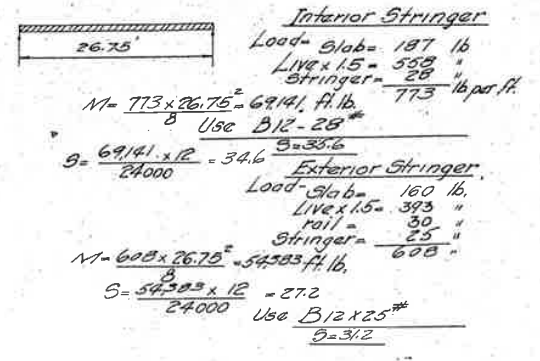 Interior Stringer
26.75'
Load- Slab= 187 lb
Live x 1.5= 558 "
Stringer= 28 "
773 lb per ft.
M= 773 x 26.75² / 8 = 69,141. ft. lb.
Use B12-28#
S=35.6
S= 69,141. x 12 / 24000 = 34.6
Exterior Stringer.
Load- Slab= 160 lb.
Live x 1.5= 393 "
rail= 30 "
Stringer= 25 "
608 "
M= 608 x 26.75² / 8 = 54,383 ft. lb.
S= 54,383 x 12 / 24000 = 27.2
Use B12x25#
S=31.2